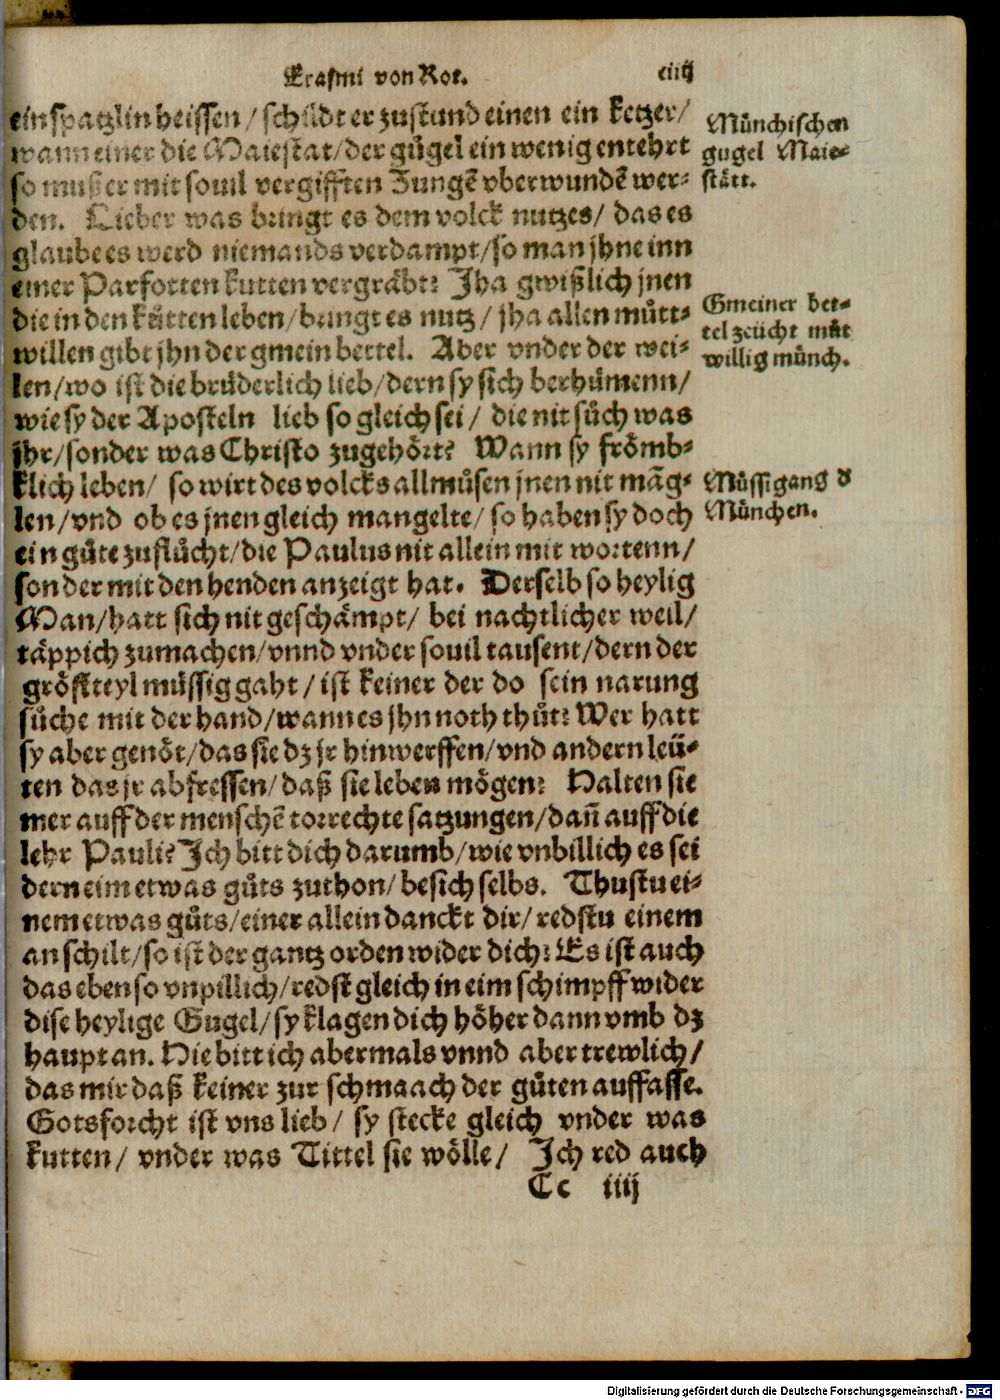 Erasmi von Rot.
ciiij
ein spatzlin heissen / schildt er zustund einen ein ketzer /
wann einer die Maiestat / der gügel ein wenig entehrt
so muß er mit souil vergifften Zungē vberwundē wer-
den. Lieber was bringt es dem volck nutzes / das es
glaube es werd niemands verdampt / so man jhne inn
einer Parforten kutten vergräbt? Jha gwißlich jnen
die in den kůtten leben / bringt es nutz / jha allen můtt-
willen gibt jhn der gmein bettel. Aber vnder der wei-
len / wo ist die brüderlich lieb / dern sy sich berhümenn /
wie sy der Aposteln lieb so gleich sei / die nit sůch was
jhr / sonder was Christo zugehört? Wann sy frömb-
klich leben / so wirt des volcks allmůsen jnen nit māg-
len / vnd ob es jnen gleich mangelte / so haben sy doch
ein gůte zuflůcht / die Paulus nit allein mit wortenn /
sonder mit den henden anzeigt hat. Derselb so heylig
Man / hatt sich nit geschämpt / bei nachtlicher weil /
täppich zumachen / vnnd vnder souil tausent / dern der
gröst teyl müssig gaht / ist keiner der do sein narung
sůche mit der hand / wann es jhn noth thůt? Wer hatt
sy aber genöt / das sie dz jr hinwerffen / vnd andern leü-
ten das jr abfressen / daß sie leben mögen? Halten sie
mer auff der menschē torrechte satzungen / dañ auff die
lehr Pauli? Ich bitt dich darumb / wie vnbillich es sei
dern eim etwas gůts zuthon / besich selbs. Thustu ei-
nem etwas gůts / einer allein danckt dir / redstu einem
an schilt / so ist der gantz orden wider dich? Es ist auch
das eben so vnpillich / redst gleich in eim schimpff wider
dise heylige Gugel / sy klagen dich höher dann vmb dz
haupt an. Hie bitt ich abermals vnnd aber trewlich /
das mir daß keiner zur schmaach der gůten auffasse.
Gotsforcht ist vns lieb / sy stecke gleich vnder was
kutten / vnder was Tittel sie wölle / Ich red auch
Cc iiij
Münchischen
gugel Maie-
stätt.
Gmeiner bet-
tel zeücht můt
willig münch.
Müssigang d
München.
Digitalisierung gefördert durch die Deutsche Forschungsgemeinschaft - DFG